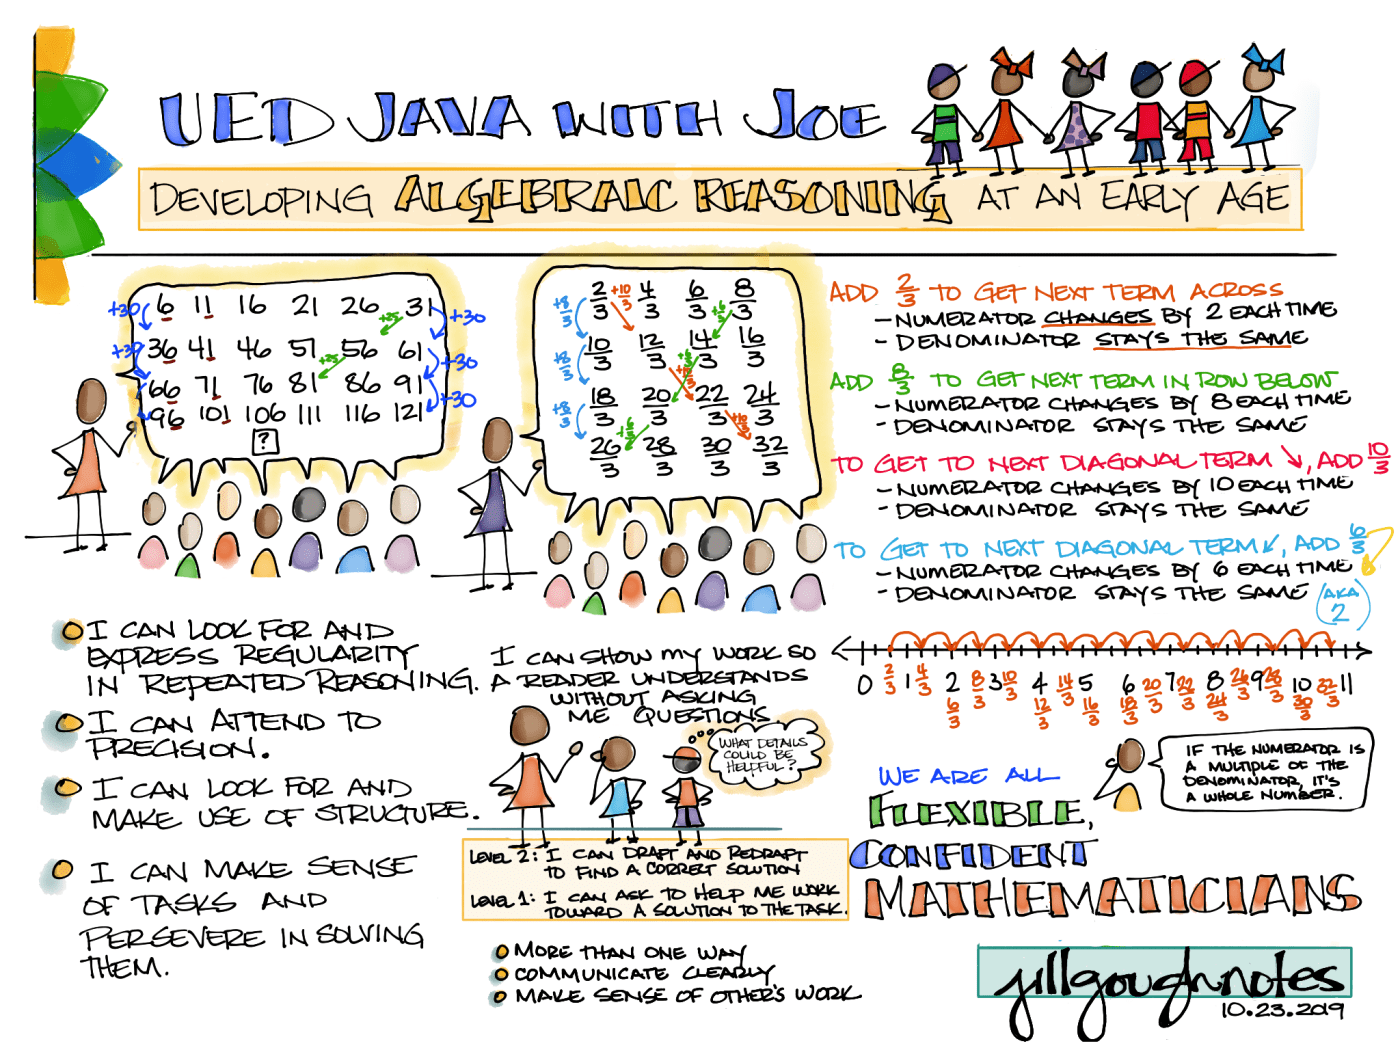 UED JAVA WITH JOE
DEVELOPING ALGEBRAIC REASONING AT AN EARLY AGE
+30 6 11 16 21 26 31 +30
+25
+30 36 41 46 51 56 61 +30
+25
66 71 76 81 86 91 +30
96 101 106 111 116 121
?
2/3 +10/3 4/3 6/3 8/3
+8/3 +6/3
10/3 12/3 14/3 16/3
+8/3 +6/3 +10/3
18/3 20/3 22/3 24/3
+8/3 +6/3 +10/3
26/3 28/3 30/3 32/3
ADD 2/3 TO GET NEXT TERM ACROSS
- NUMERATOR CHANGES BY 2 EACH TIME
- DENOMINATOR STAYS THE SAME
ADD 8/3 TO GET NEXT TERM IN ROW BELOW
- NUMERATOR CHANGES BY 8 EACH TIME
- DENOMINATOR STAYS THE SAME
TO GET TO NEXT DIAGONAL TERM ↘, ADD 10/3
- NUMERATOR CHANGES BY 10 EACH TIME
- DENOMINATOR STAYS THE SAME
TO GET TO NEXT DIAGONAL TERM ↙, ADD 6/3
- NUMERATOR CHANGES BY 6 EACH TIME
- DENOMINATOR STAYS THE SAME (AKA 2)
0 2/3 1 4/3 2 8/3 3 10/3 4 14/3 5 6 20/3 7 22/3 8 26/3 9 28/3 10 32/3 11
6/3 12/3 16/3 18/3 24/3 30/3
I CAN LOOK FOR AND
EXPRESS REGULARITY
IN REPEATED REASONING.
I CAN ATTEND TO
PRECISION.
I CAN LOOK FOR AND
MAKE USE OF STRUCTURE.
I CAN MAKE SENSE
OF TASKS AND
PERSEVERE IN SOLVING
THEM.
I CAN SHOW MY WORK SO
A READER UNDERSTANDS
WITHOUT ASKING
ME QUESTIONS
WHAT DETAILS
COULD BE
HELPFUL?
LEVEL 2: I CAN DRAFT AND REDRAFT
TO FIND A CORRECT SOLUTION
LEVEL 1: I CAN ASK TO HELP ME WORK
TOWARD A SOLUTION TO THE TASK.
MORE THAN ONE WAY
COMMUNICATE CLEARLY
MAKE SENSE OF OTHER'S WORK
IF THE NUMERATOR IS
A MULTIPLE OF THE
DENOMINATOR, IT'S
A WHOLE NUMBER.
WE ARE ALL
FLEXIBLE,
CONFIDENT
MATHEMATICIANS
jillgoughnotes
10.23.2019